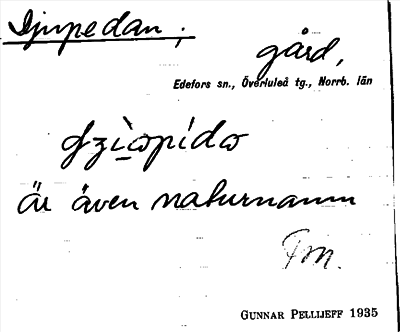 Djupedan ;
gård,
Edefors sn., Överluleå tg., Norrb. län
är även naturnamn
Fm.
GUNNAR PELLIJEFF 1935